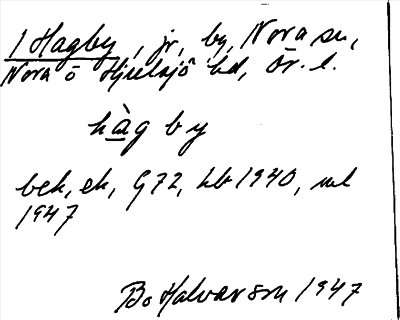 1 Hagby, jr, by, Nora sn,
Nora o Hjulsjö hd, Ör. l.
hàg by
bek, ek, G72, hb 1940, ml
1947
Bo Halvarson 1947